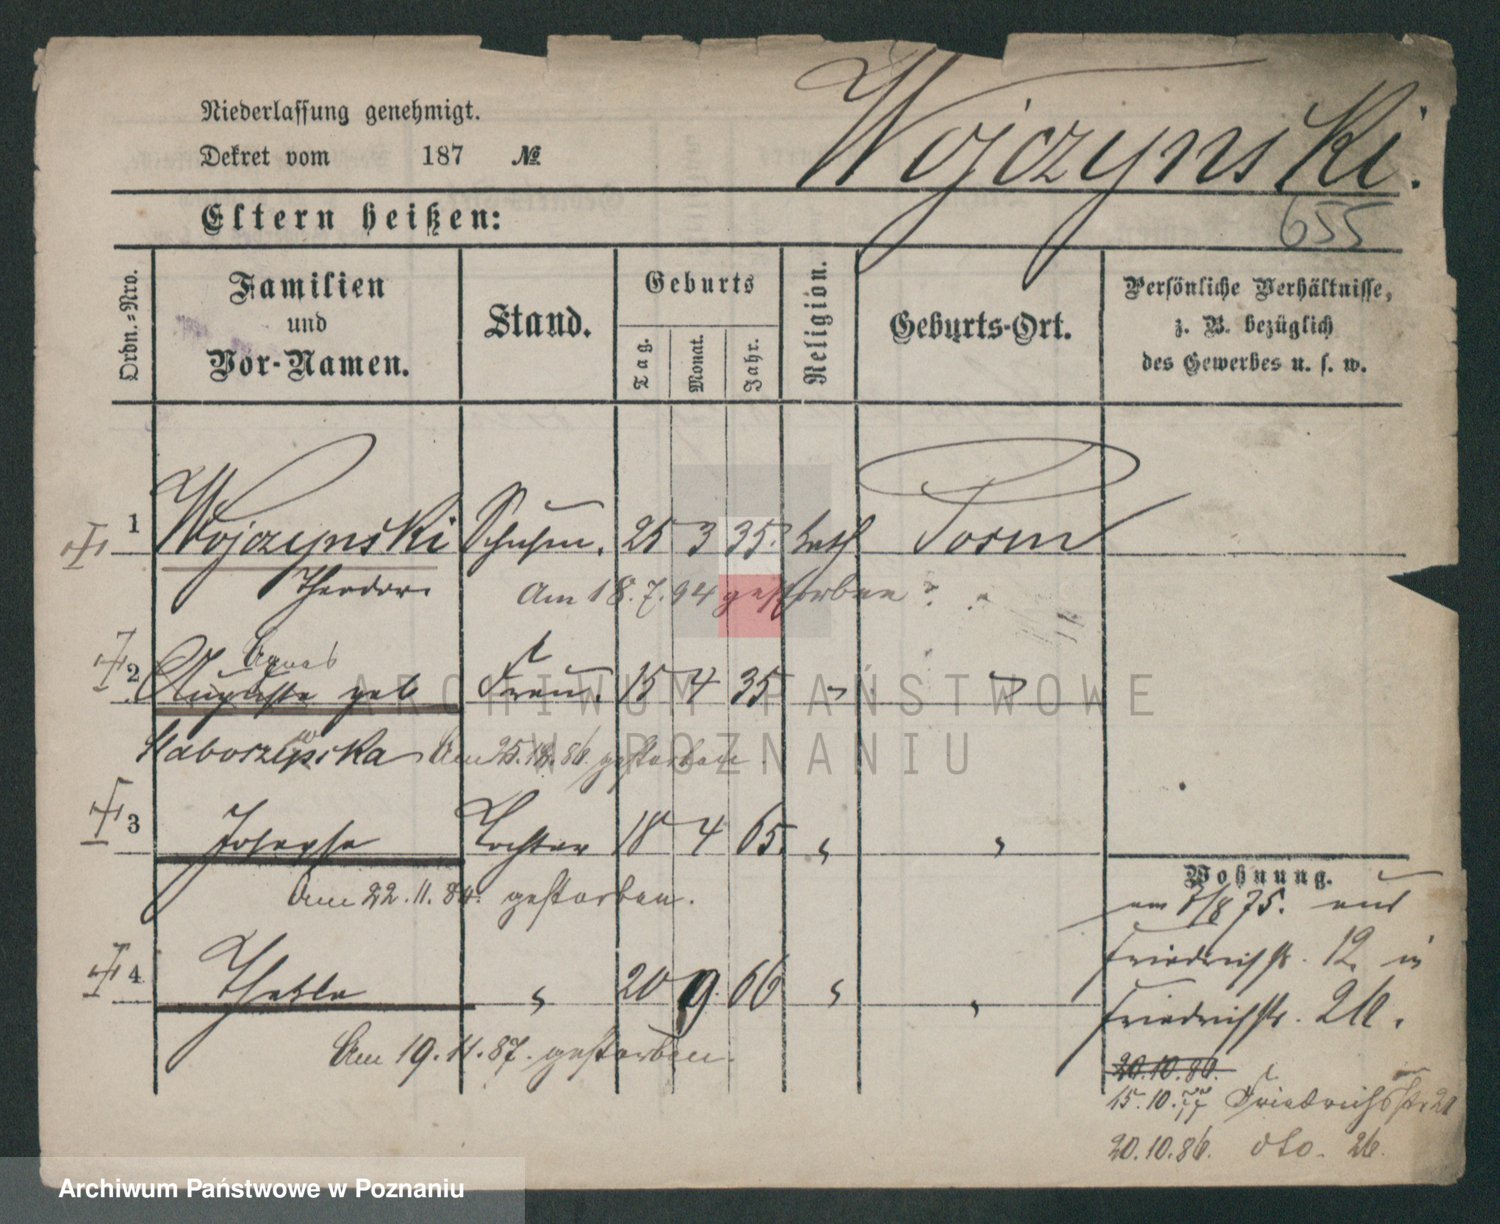 Niederlassung genehmigt.
Dekret vom 187 №
Wojczynski.
655
Eltern heißen:
Ordn.-Nro.
Familien
und
Vor-Namen.
Stand.
Geburts
Tag.
Monat.
Jahr.
Religion.
Geburts-Ort.
Persönliche Verhältnisse,
z. B. bezüglich
des Gewerbes u. s. w.
1 Wojczynski Schuhm. 25 3 35. kath Posen
Theodor.
Am 18.7.94 gestorben
2 Agnes
Auguste geb Frau. 15 4 35 " "
Am 25. gestorben
3 Josepha Tochter 18 4 65. " "
Am 22.11.84. gestorben.
4 Thekla " 20 9 66 " "
Am 19.11.87. gestorben.
Wohnung.
am 3/8 75. aus
Friedrichstr. 12 in
Friedrichstr. 26.
20.10.80.
15.10.77 Friedrichsstr. 21
20.10.86. dto. 26.
ARCHIWUM PAŃSTWOWE
W POZNANIU
Archiwum Państwowe w Poznaniu